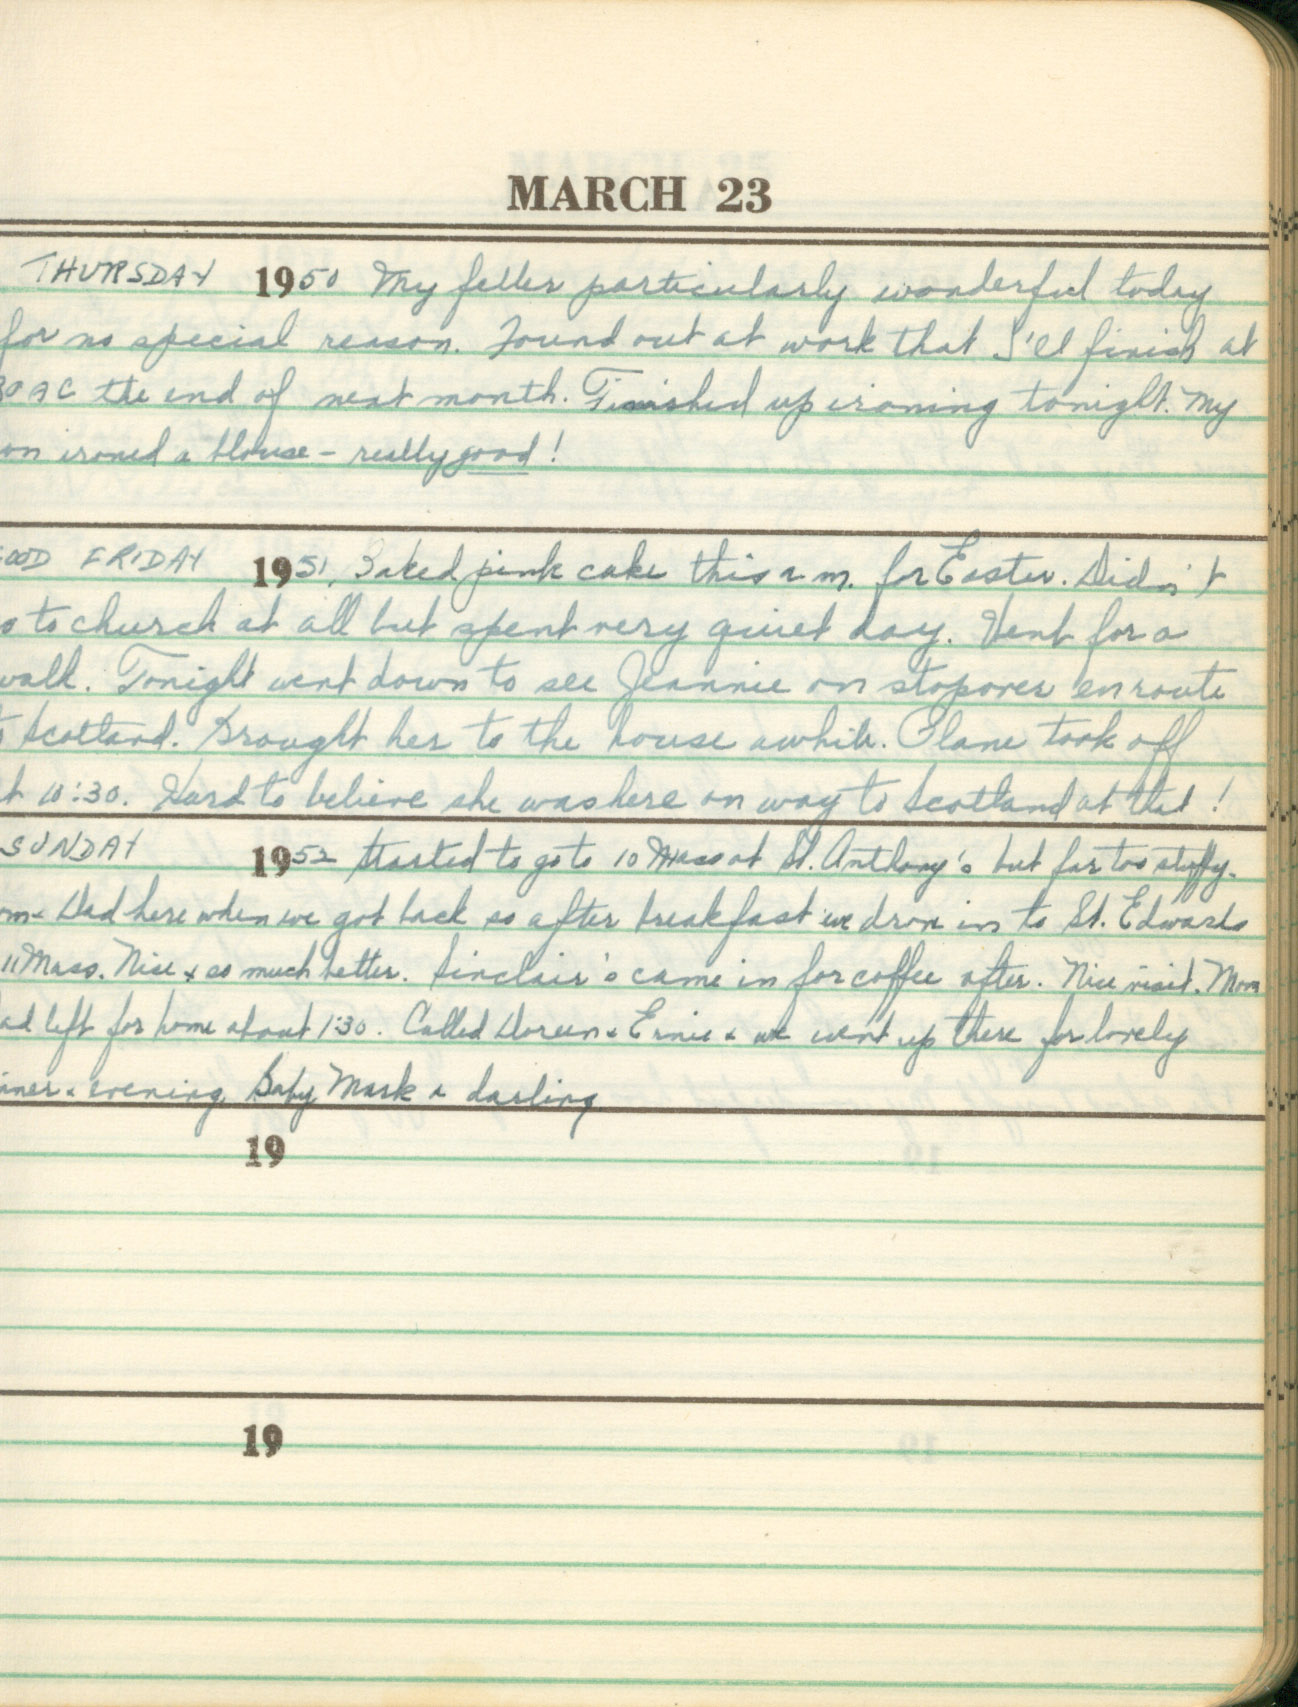 MARCH 23
THURSDAY 1950 My feller particularly wonderful today
for no special reason. Found out at work that I'll finish at
the end of next month. Finished up ironing tonight. My
ironed a blouse - really good!
FRIDAY 1951 Baked pink cake this a.m. for Easter. Didn't
to church at all but spent very quiet day. Went for a
walk. Tonight went down to see Jeannie on stopover enroute
Scotland. Brought her to the house awhile. Plane took off
10:30. Hard to believe she was here on way to Scotland at that!
SUNDAY 1952 Started to go to 10 Mass at St. Anthony's but far too stuffy.
Dad here when we got back so after breakfast we drove in to St. Edwards
11 Mass. Nice & so much better. Sinclair's came in for coffee after. Nice visit. Mom
left for home about 1:30. Called Doreen & Ernie & we went up there for lovely
& evening. Baby Mark a darling
19
19